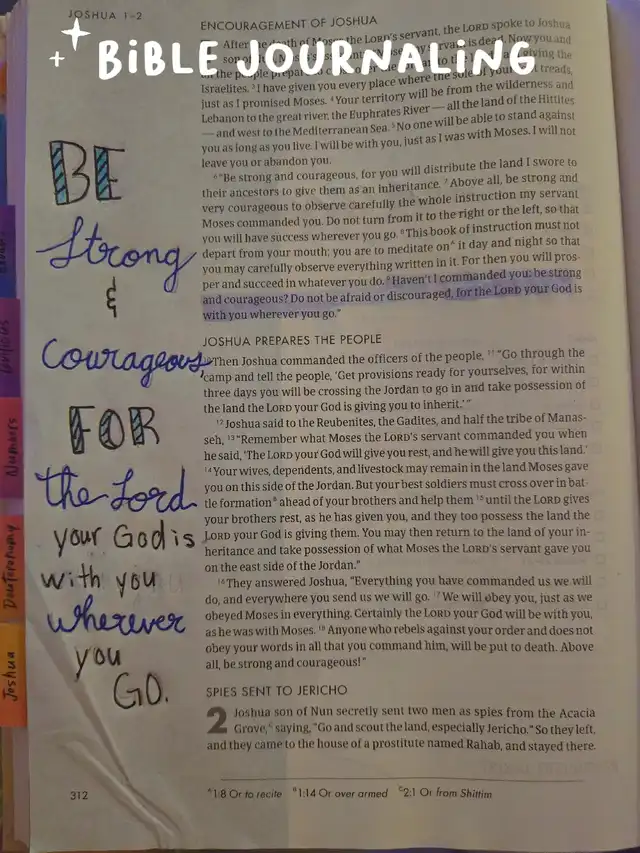 JOSHUA 1–2
BIBLE JOURNALING
BE
Strong
&
Courageous,
FOR
the Lord
your God is
with you
wherever
you
GO.
Genesis
Numbers
Deuteronomy
Joshua
ENCOURAGEMENT OF JOSHUA
After death of Moses the LORD's servant, the LORD spoke to Joshua
son servant is dead. Now you and
the people giving the
Israelites. ³I have given you every place where the sole of your foot treads,
just as I promised Moses. ⁴Your territory will be from the wilderness and
Lebanon to the great river, the Euphrates River — all the land of the Hittites
— and west to the Mediterranean Sea. ⁵No one will be able to stand against
you as long as you live. I will be with you, just as I was with Moses. I will not
leave you or abandon you.
⁶"Be strong and courageous, for you will distribute the land I swore to
their ancestors to give them as an inheritance. ⁷Above all, be strong and
very courageous to observe carefully the whole instruction my servant
Moses commanded you. Do not turn from it to the right or the left, so that
you will have success wherever you go. ⁸This book of instruction must not
depart from your mouth; you are to meditate onᴬ it day and night so that
you may carefully observe everything written in it. For then you will pros-
per and succeed in whatever you do. ⁹Haven't I commanded you: be strong
and courageous? Do not be afraid or discouraged, for the LORD your God is
with you wherever you go."
JOSHUA PREPARES THE PEOPLE
¹⁰Then Joshua commanded the officers of the people, ¹¹"Go through the
camp and tell the people, 'Get provisions ready for yourselves, for within
three days you will be crossing the Jordan to go in and take possession of
the land the LORD your God is giving you to inherit.'"
¹²Joshua said to the Reubenites, the Gadites, and half the tribe of Manas-
seh, ¹³"Remember what Moses the LORD's servant commanded you when
he said, 'The LORD your God will give you rest, and he will give you this land.'
¹⁴Your wives, dependents, and livestock may remain in the land Moses gave
you on this side of the Jordan. But your best soldiers must cross over in bat-
tle formationᴮ ahead of your brothers and help them ¹⁵until the LORD gives
your brothers rest, as he has given you, and they too possess the land the
LORD your God is giving them. You may then return to the land of your in-
heritance and take possession of what Moses the LORD's servant gave you
on the east side of the Jordan."
¹⁶They answered Joshua, "Everything you have commanded us we will
do, and everywhere you send us we will go. ¹⁷We will obey you, just as we
obeyed Moses in everything. Certainly the LORD your God will be with you,
as he was with Moses. ¹⁸Anyone who rebels against your order and does not
obey your words in all that you command him, will be put to death. Above
all, be strong and courageous!"
SPIES SENT TO JERICHO
2 Joshua son of Nun secretly sent two men as spies from the Acacia
Grove,ᶜ saying, "Go and scout the land, especially Jericho." So they left,
and they came to the house of a prostitute named Rahab, and stayed there.
312
ᴬ1:8 Or to recite ᴮ1:14 Or over armed ᶜ2:1 Or from Shittim